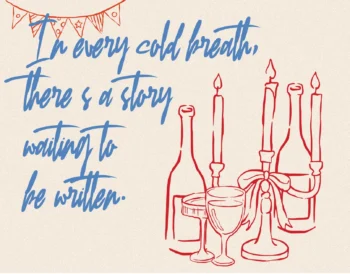 In every cold breath,
there s a story
waiting to
be written.